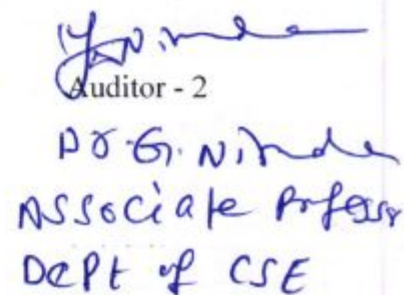 Auditor - 2
Dr. G. Nirmala
Associate Professor
Dept of CSE